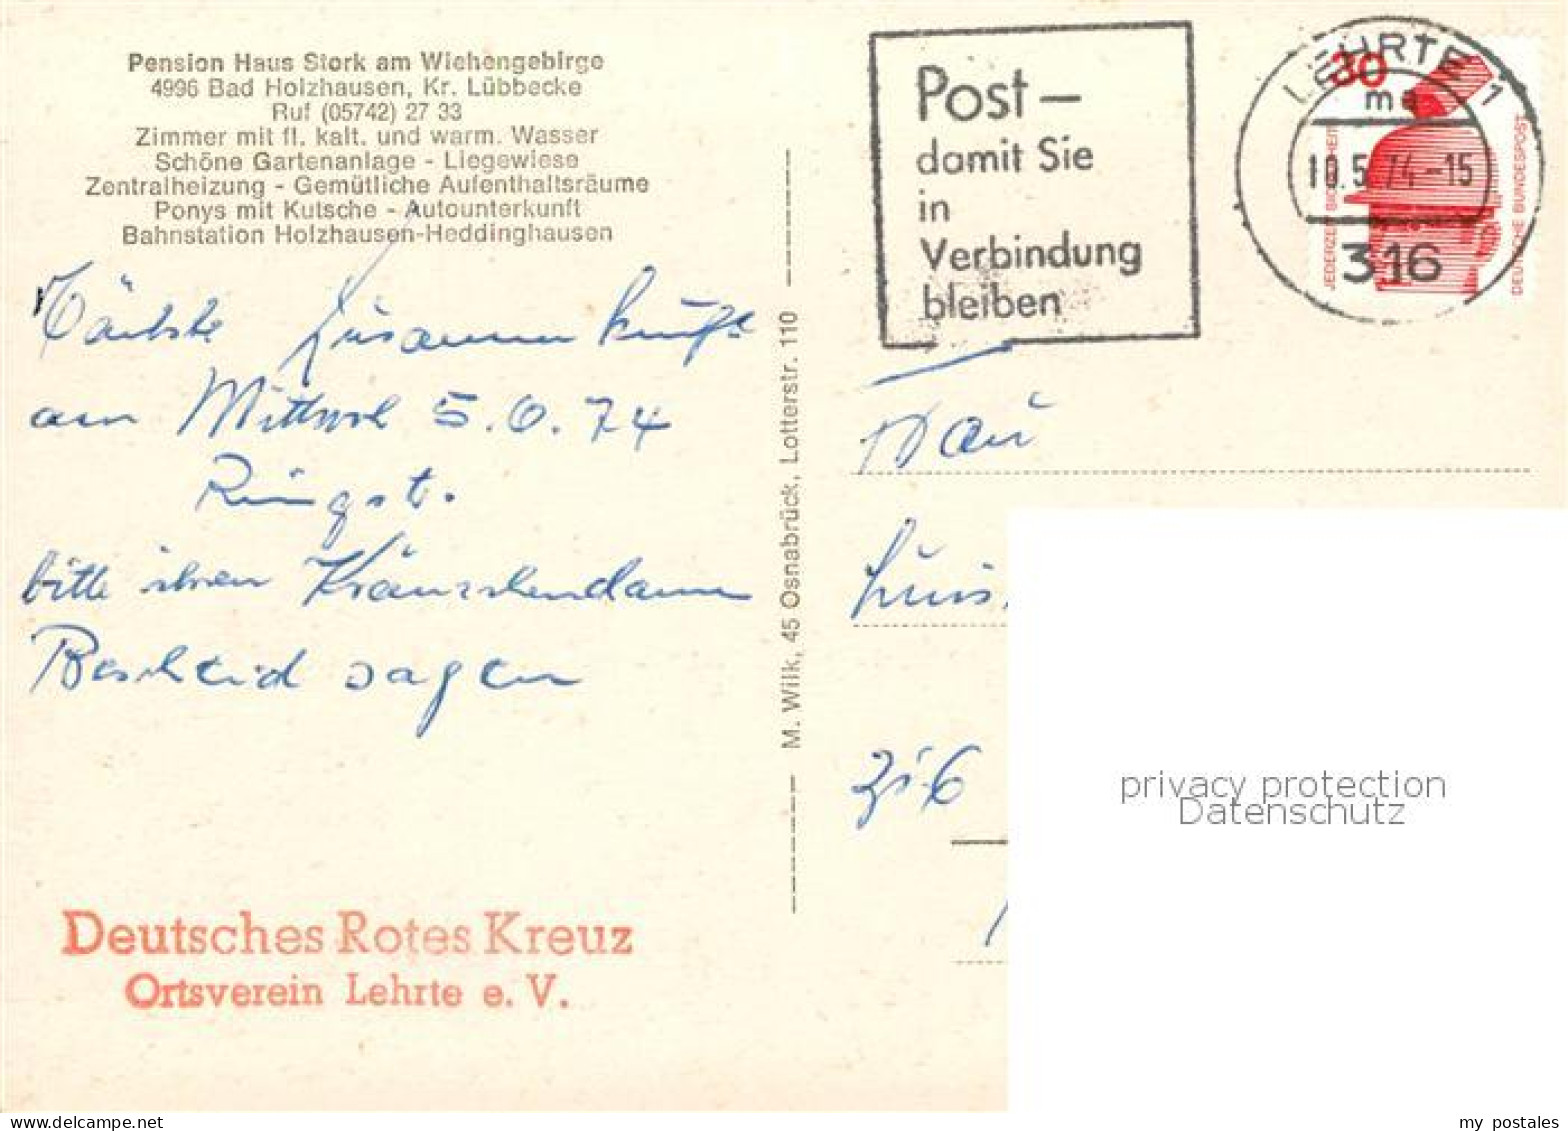 Pension Haus Stork am Wiehengebirge
4996 Bad Holzhausen, Kr. Lübbecke
Ruf (05742) 27 33
Zimmer mit fl. kalt. und warm. Wasser
Schöne Gartenanlage - Liegewiese
Zentralheizung - Gemütliche Aufenthaltsräume
Ponys mit Kutsche - Autounterkunft
Bahnstation Holzhausen-Heddinghausen
Zusammenkunft
am Mittwoch 5.6.74
Ringst.
bitte ihren Kränzchendamen
Bescheid sagen
Deutsches Rotes Kreuz
Ortsverein Lehrte e. V.
M. Wilk, 45 Osnabrück, Lotterstr. 110
Post —
damit Sie
in
Verbindung
bleiben
LEHRTE 1
ma
10.5.74-15
316
30
JEDERZEIT SICHERHEIT
DEUTSCHE BUNDESPOST
privacy protection
Datenschutz
my postales